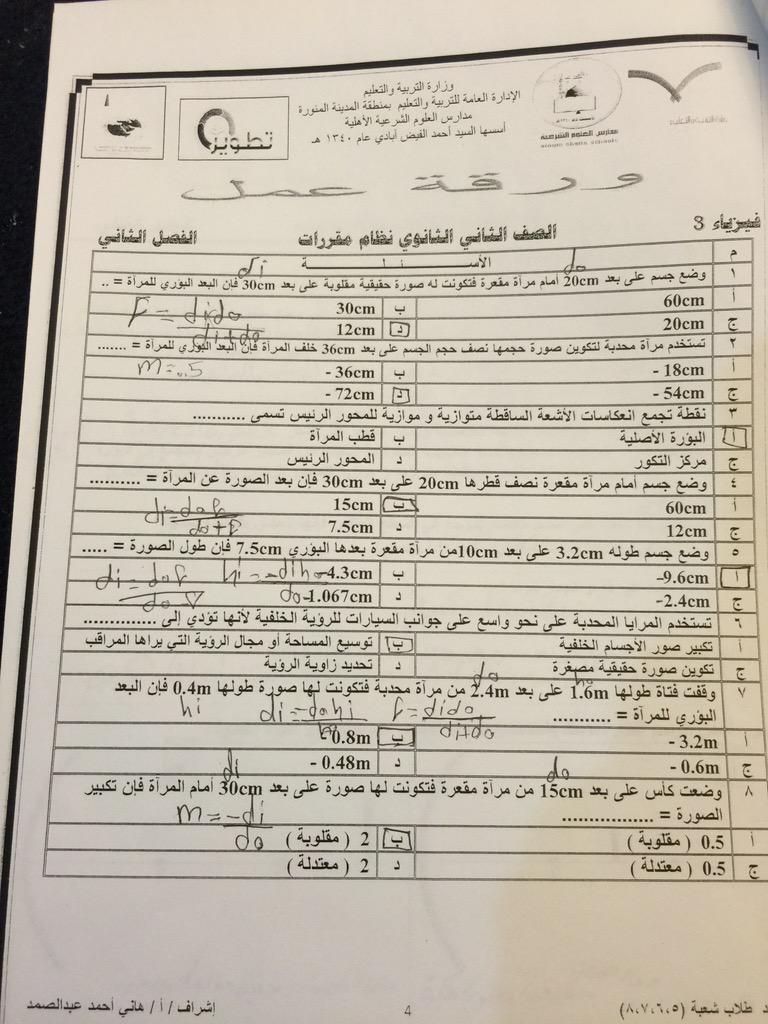 وزارة التربية والتعليم
الإدارة العامة للتربية والتعليم بمنطقة المدينة المنورة
مدارس العلوم الشرعية الأهلية
أسسها السيد أحمد الفيض أبادي عام ١٣٤٠ هـ
تطوير
ورقة عمل
فيزياء 3 الصف الثاني الثانوي نظام مقررات الفصل الثاني
م الأسئلة
do di
١ وضع جسم على بعد 20cm أمام مرآة مقعرة فتكونت له صورة حقيقية مقلوبة على بعد 30cm فإن البعد البؤري للمرآة = ..
أ 60cm ب 30cm
ج 20cm د 12cm
F = dido / di+do
٢ تستخدم مرآة محدبة لتكوين صورة حجمها نصف حجم الجسم على بعد 36cm خلف المرآة فإن البعد البؤري للمرآة = .......
أ - 18cm ب - 36cm
m = 0.5
ج - 54cm د - 72cm
٣ نقطة تجمع انعكاسات الأشعة الساقطة متوازية و موازية للمحور الرئيس تسمى ...........
أ البؤرة الأصلية ب قطب المرآة
ج مركز التكور د المحور الرئيس
٤ وضع جسم أمام مرآة مقعرة نصف قطرها 20cm على بعد 30cm فإن بعد الصورة عن المرآة = ..........
أ 60cm ب 15cm
ج 12cm د 7.5cm
٥ وضع جسم طوله 3.2cm على بعد 10cm من مرآة مقعرة بعدها البؤري 7.5cm فإن طول الصورة = .....
أ -9.6cm ب -4.3cm
ج -2.4cm د -1.067cm
٦ تستخدم المرايا المحدبة على نحو واسع على جوانب السيارات للرؤية الخلفية لأنها تؤدي إلى ..............
أ تكبير صور الأجسام الخلفية ب توسيع المساحة أو مجال الرؤية التي يراها المراقب
ج تكوين صورة حقيقية مصغرة د تحديد زاوية الرؤية
ho do
٧ وقفت فتاة طولها 1.6m على بعد 2.4m من مرآة محدبة فتكونت لها صورة طولها 0.4m فإن البعد
hi
البؤري للمرآة = ...........
di = -dohi / ho f = dido / di+do
أ - 3.2m ب - 0.8m
ج - 0.6m د - 0.48m
do di
٨ وضعت كأس على بعد 15cm من مرآة مقعرة فتكونت لها صورة على بعد 30cm أمام المرآة فإن تكبير
الصورة = .................
m = -di / do
أ 0.5 ( مقلوبة ) ب 2 ( مقلوبة )
ج 0.5 ( معتدلة ) د 2 ( معتدلة )
طلاب شعبة (٨،٧،٦،٥) 4 إشراف / أ / هاني أحمد عبدالصمد